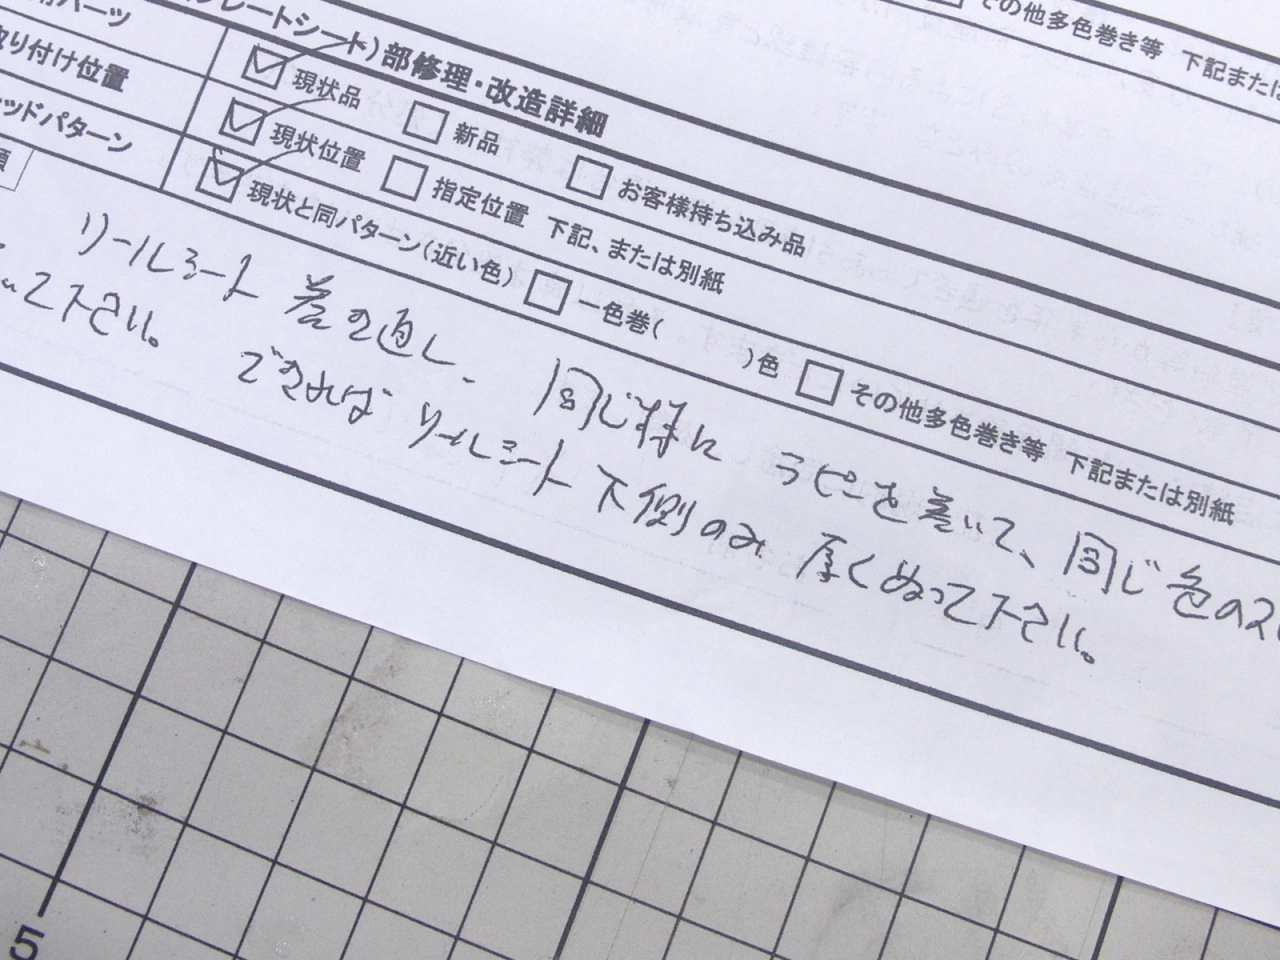 その他多色巻き等 下記または
レートシート)部修理・改造詳細
パーツ
現状品 新品 お客様持ち込み品
り付け位置
現状位置 指定位置 下記、または別紙
ッドパターン
現状と同パターン(近い色) 一色巻( )色 その他多色巻き等 下記または別紙
リールシート 巻き直し. 同じ様に ラピニを巻いて、同じ色のスレ
いて下さい。 できれば リールシート下側のみ 厚くぬって下さい。
5